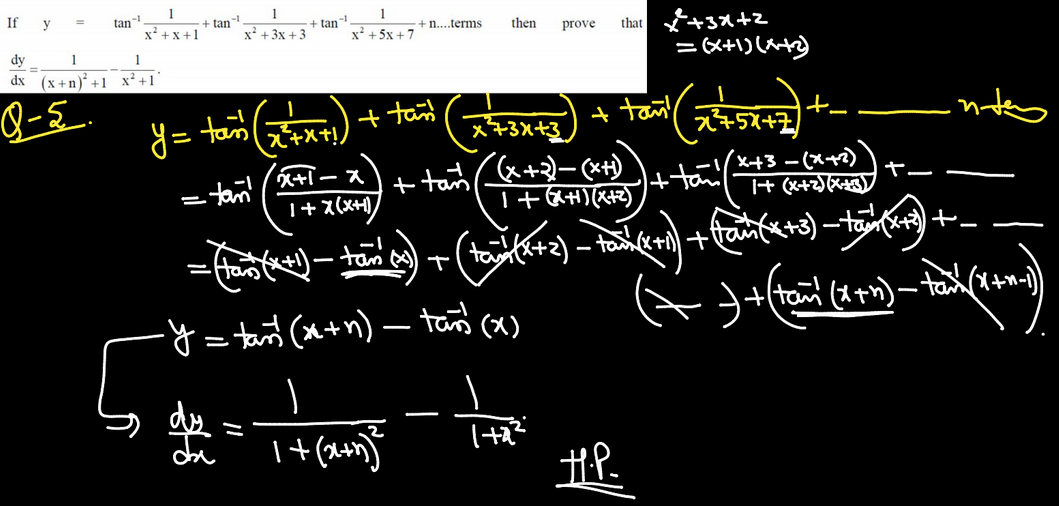 If y = tan⁻¹ 1/(x² + x + 1) + tan⁻¹ 1/(x² + 3x + 3) + tan⁻¹ 1/(x² + 5x + 7) + n....terms then prove that
dy/dx = 1/((x + n)² + 1) − 1/(x² + 1).
x² + 3x + 2
= (x+1)(x+2)
Q-5. y = tan⁻¹(1/(x²+x+1)) + tan⁻¹(1/(x²+3x+3)) + tan⁻¹(1/(x²+5x+7)) + - ——— n-term
= tan⁻¹((x+1 − x)/(1 + x(x+1))) + tan⁻¹(((x+2) − (x+1))/(1 + (x+1)(x+2))) + tan⁻¹((x+3 − (x+2))/(1 + (x+2)(x+3))) + - ——
= (tan⁻¹(x+1) − tan⁻¹(x)) + (tan⁻¹(x+2) − tan⁻¹(x+1)) + (tan⁻¹(x+3) − tan⁻¹(x+2)) + - ——
( — ) + (tan⁻¹(x+n) − tan⁻¹(x+n-1)).
y = tan⁻¹(x+n) − tan⁻¹(x)
dy/dx = 1/(1 + (x+n)²) − 1/(1+x²).
H.P.